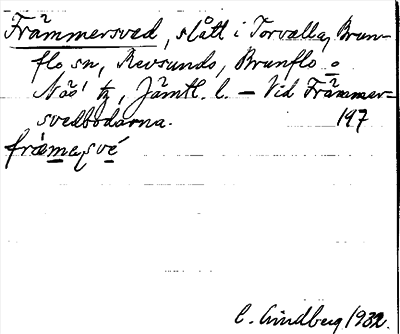 Främmersved, slått i Torvalla, Brun-
flo sn, Revsunds, Brunflo o
Näs' tg, Jämtl. l. – Vid Främmer-
svedbodarna. 197
C. Lindberg 1932.